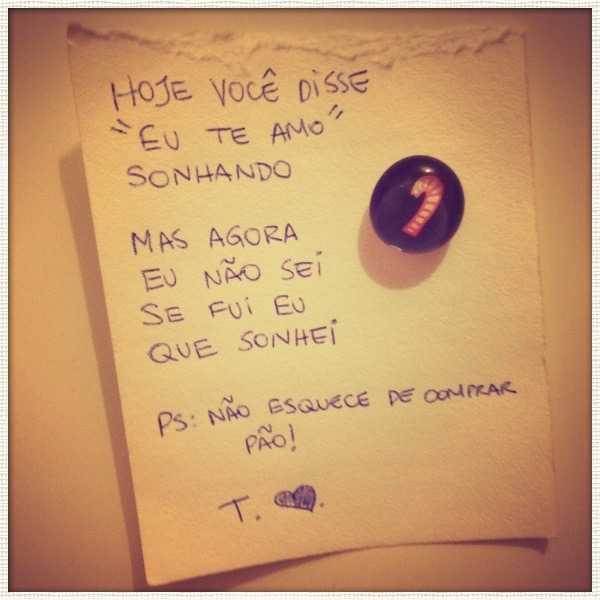 HOJE VOCÊ DISSE
"EU TE AMO"
SONHANDO
MAS AGORA
EU NÃO SEI
SE FUI EU
QUE SONHEI
PS: NÃO ESQUECE DE COMPRAR
PÃO!
T. ♥.